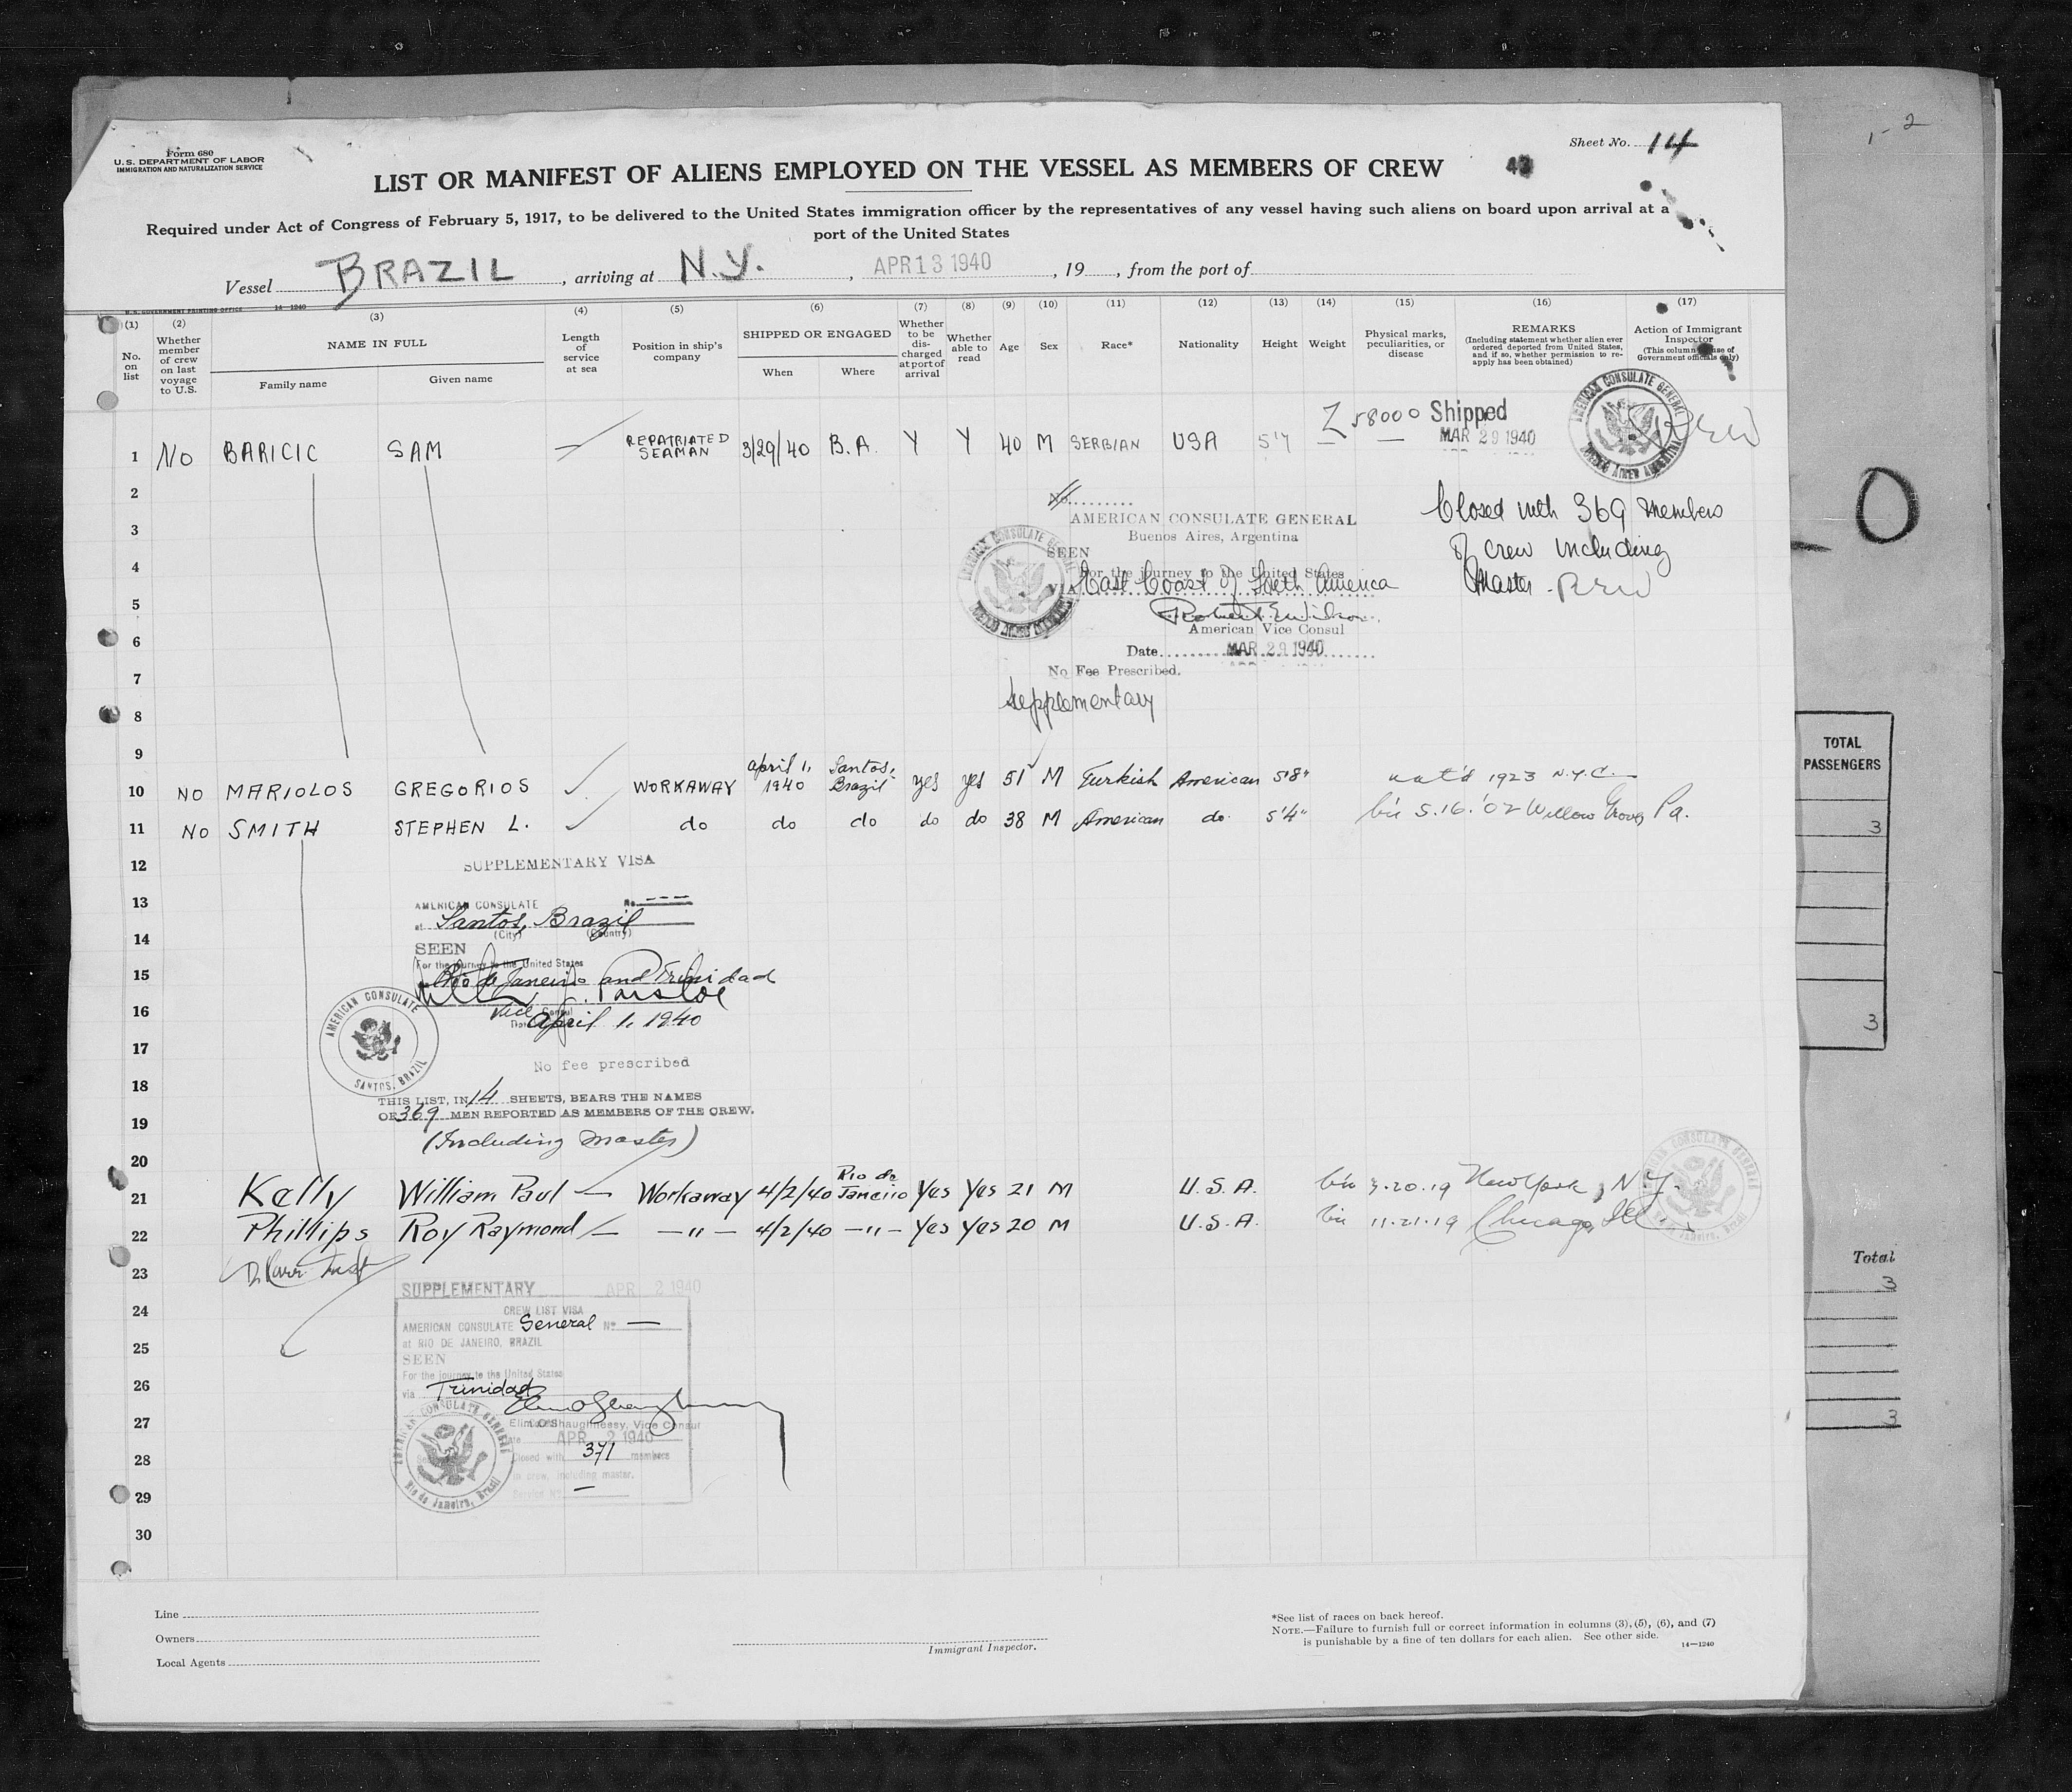 1-2
Form 680
U. S. DEPARTMENT OF LABOR
IMMIGRATION AND NATURALIZATION SERVICE
Sheet No. 14
LIST OR MANIFEST OF ALIENS EMPLOYED ON THE VESSEL AS MEMBERS OF CREW
43
Required under Act of Congress of February 5, 1917, to be delivered to the United States immigration officer by the representatives of any vessel having such aliens on board upon arrival at a
port of the United States
Vessel BRAZIL, arriving at N.Y., APR 13 1940, 19 , from the port of
U. S. GOVERNMENT PRINTING OFFICE 14—1240
(1) (2) (3) (4) (5) (6) (7) (8) (9) (10) (11) (12) (13) (14) (15) (16) (17)
No. on list
Whether member of crew on last voyage to U.S.
NAME IN FULL
Family name
Given name
Length of service at sea
Position in ship's company
SHIPPED OR ENGAGED
When
Where
Whether to be discharged at port of arrival
Whether able to read
Age
Sex
Race*
Nationality
Height
Weight
Physical marks, peculiarities, or disease
REMARKS
(Including statement whether alien ever ordered deported from United States, and if so, whether permission to reapply has been obtained)
Action of Immigrant Inspector
(This column use of Government officials only)
Z 58000 Shipped
MAR 29 1940
AMERICAN CONSULATE GENERAL
BUENOS AIRES, ARGENTINA
REW
1 NO BARICIC SAM — REPATRIATED SEAMAN 3/29/40 B.A. Y Y 40 M SERBIAN USA 5'7
2
No.
Closed with 369 members
3
AMERICAN CONSULATE GENERAL
Buenos Aires, Argentina
of crew including
SEEN
4
For the journey to the United States
Master. REW
VIA East Coast of South America
5
Robert E. Wilson
American Vice Consul
6
Date MAR 29 1940
No Fee Prescribed.
7
supplementary
8
9
10 NO MARIOLOS GREGORIOS WORKAWAY April 1, 1940 Santos, Brazil yes yes 51 M Turkish American 5'8" nat'd 1923 N.Y.C.
11 NO SMITH STEPHEN L. do do do do do 38 M American do. 5'4" b'n 5.16.'02 Willow Grove, Pa.
12
SUPPLEMENTARY VISA
13
AMERICAN CONSULATE No. ---
at Santos, Brazil
(City) (Country)
14
SEEN
For the journey to the United States
15
Rio de Janeiro and Trinidad
16
Vice Consul
April 1, 1940
AMERICAN CONSULATE
SANTOS, BRAZIL
17
No fee prescribed
18
THIS LIST, IN 14 SHEETS, BEARS THE NAMES
OF 369 MEN REPORTED AS MEMBERS OF THE CREW.
19
(Including Master)
20
21 Kelly William Paul — Workaway 4/2/40 Rio de Janeiro Yes Yes 21 M U.S.A. b'n 3.20.19 New York, N.Y.
22 Phillips Roy Raymond — —"— 4/2/40 —"— Yes Yes 20 M U.S.A. b'n 11.21.19 Chicago, Ill
23
SUPPLEMENTARY APR 2 1940
24
CREW LIST VISA
AMERICAN CONSULATE General No —
at RIO DE JANEIRO, BRAZIL
25
SEEN
For the journey to the United States
26
via Trinidad
27
Elim O'Shaughnessy, Vice Consul
Date APR 2 1940
28
Closed with 371 members
in crew, including master.
Service No. —
AMERICAN CONSULATE GENERAL
Rio de Janeiro, Brazil
29
30
Line
Owners
Local Agents
Immigrant Inspector.
*See list of races on back hereof.
NOTE.—Failure to furnish full or correct information in columns (3), (5), (6), and (7)
is punishable by a fine of ten dollars for each alien. See other side.
14—1240
0
TOTAL
PASSENGERS
3
3
Total
3
3